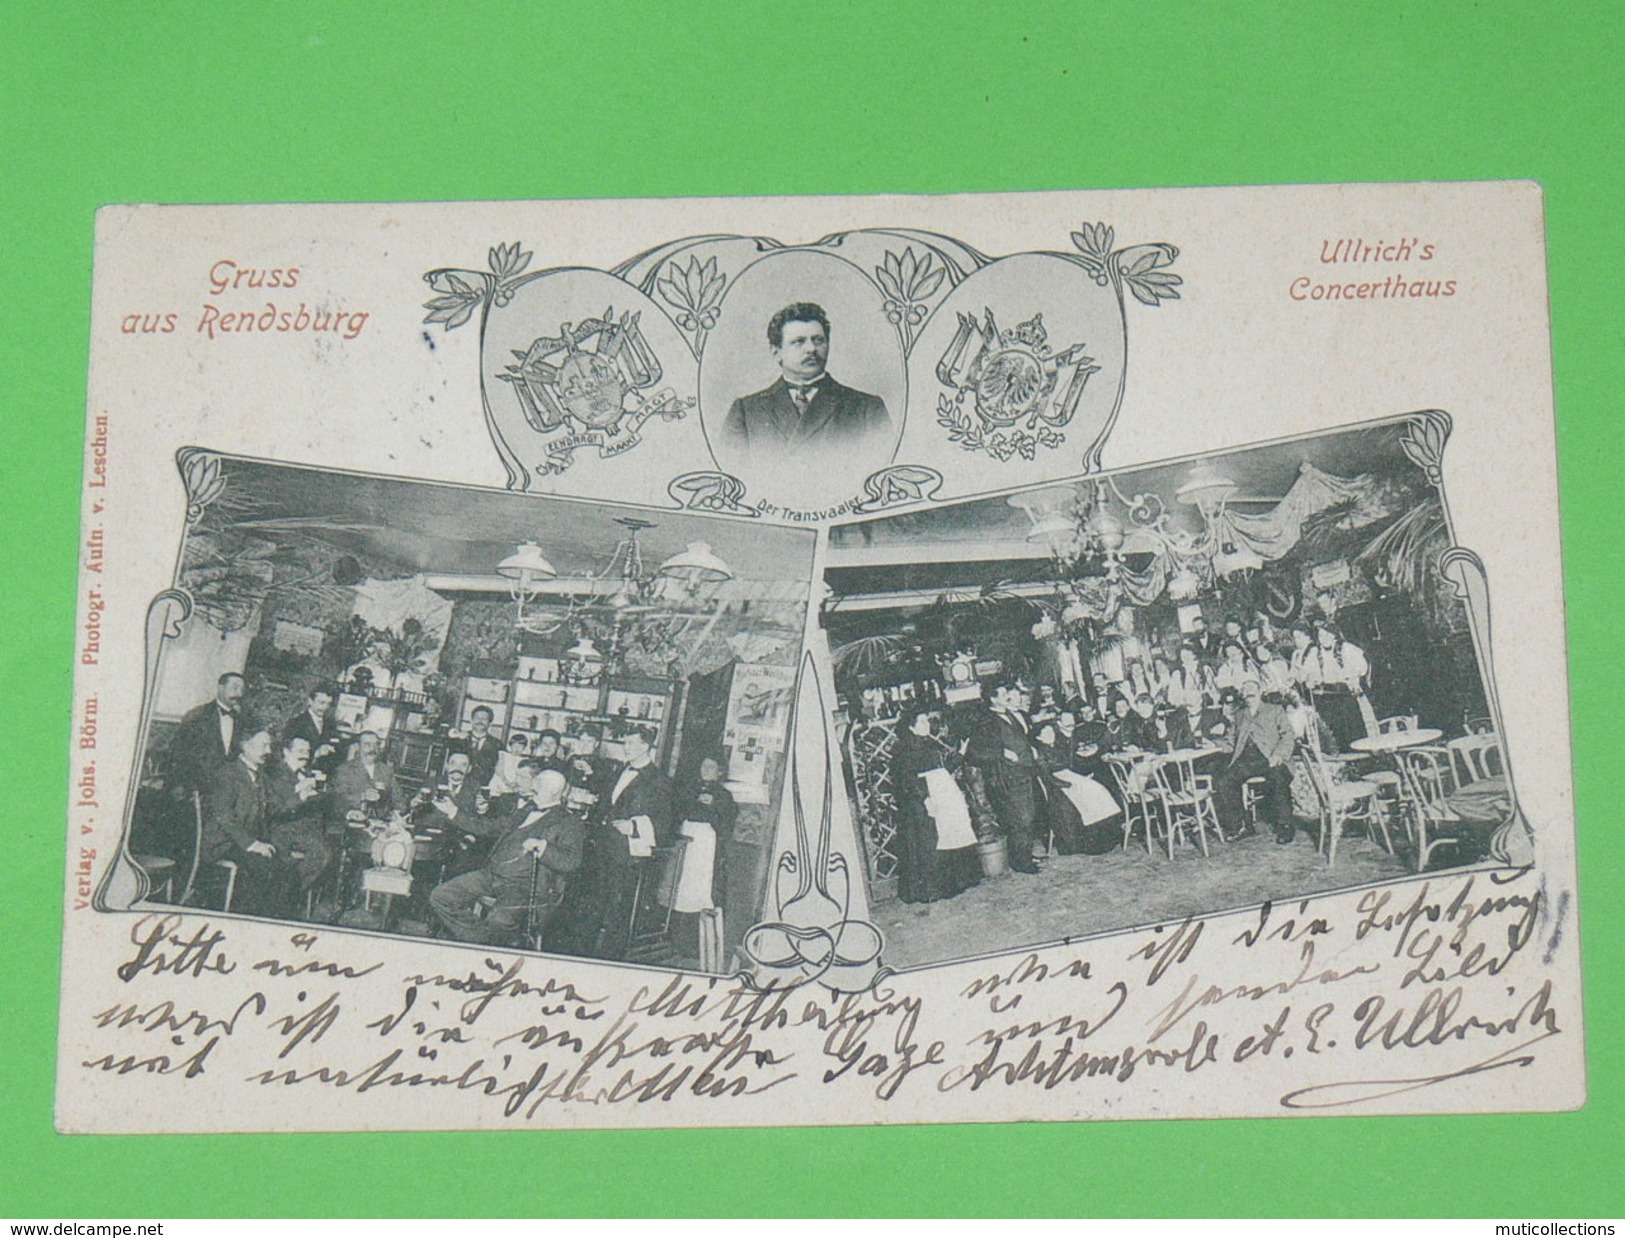 Gruss
aus Rendsburg
Ullrich's
Concerthaus
EENDRAGT
MAAKT
MAGT
Der Transvaaler
Verlag v. Johs. Börm. Photogr. Aufn. v. Leschen.
Bitte um nähere Mittheilung wie ist die Besetzung
was ist die äußerste Gage und senden Bild
mit natürlich Achtungsvoll A. E. Ullrich
www.delcampe.net
muticollections